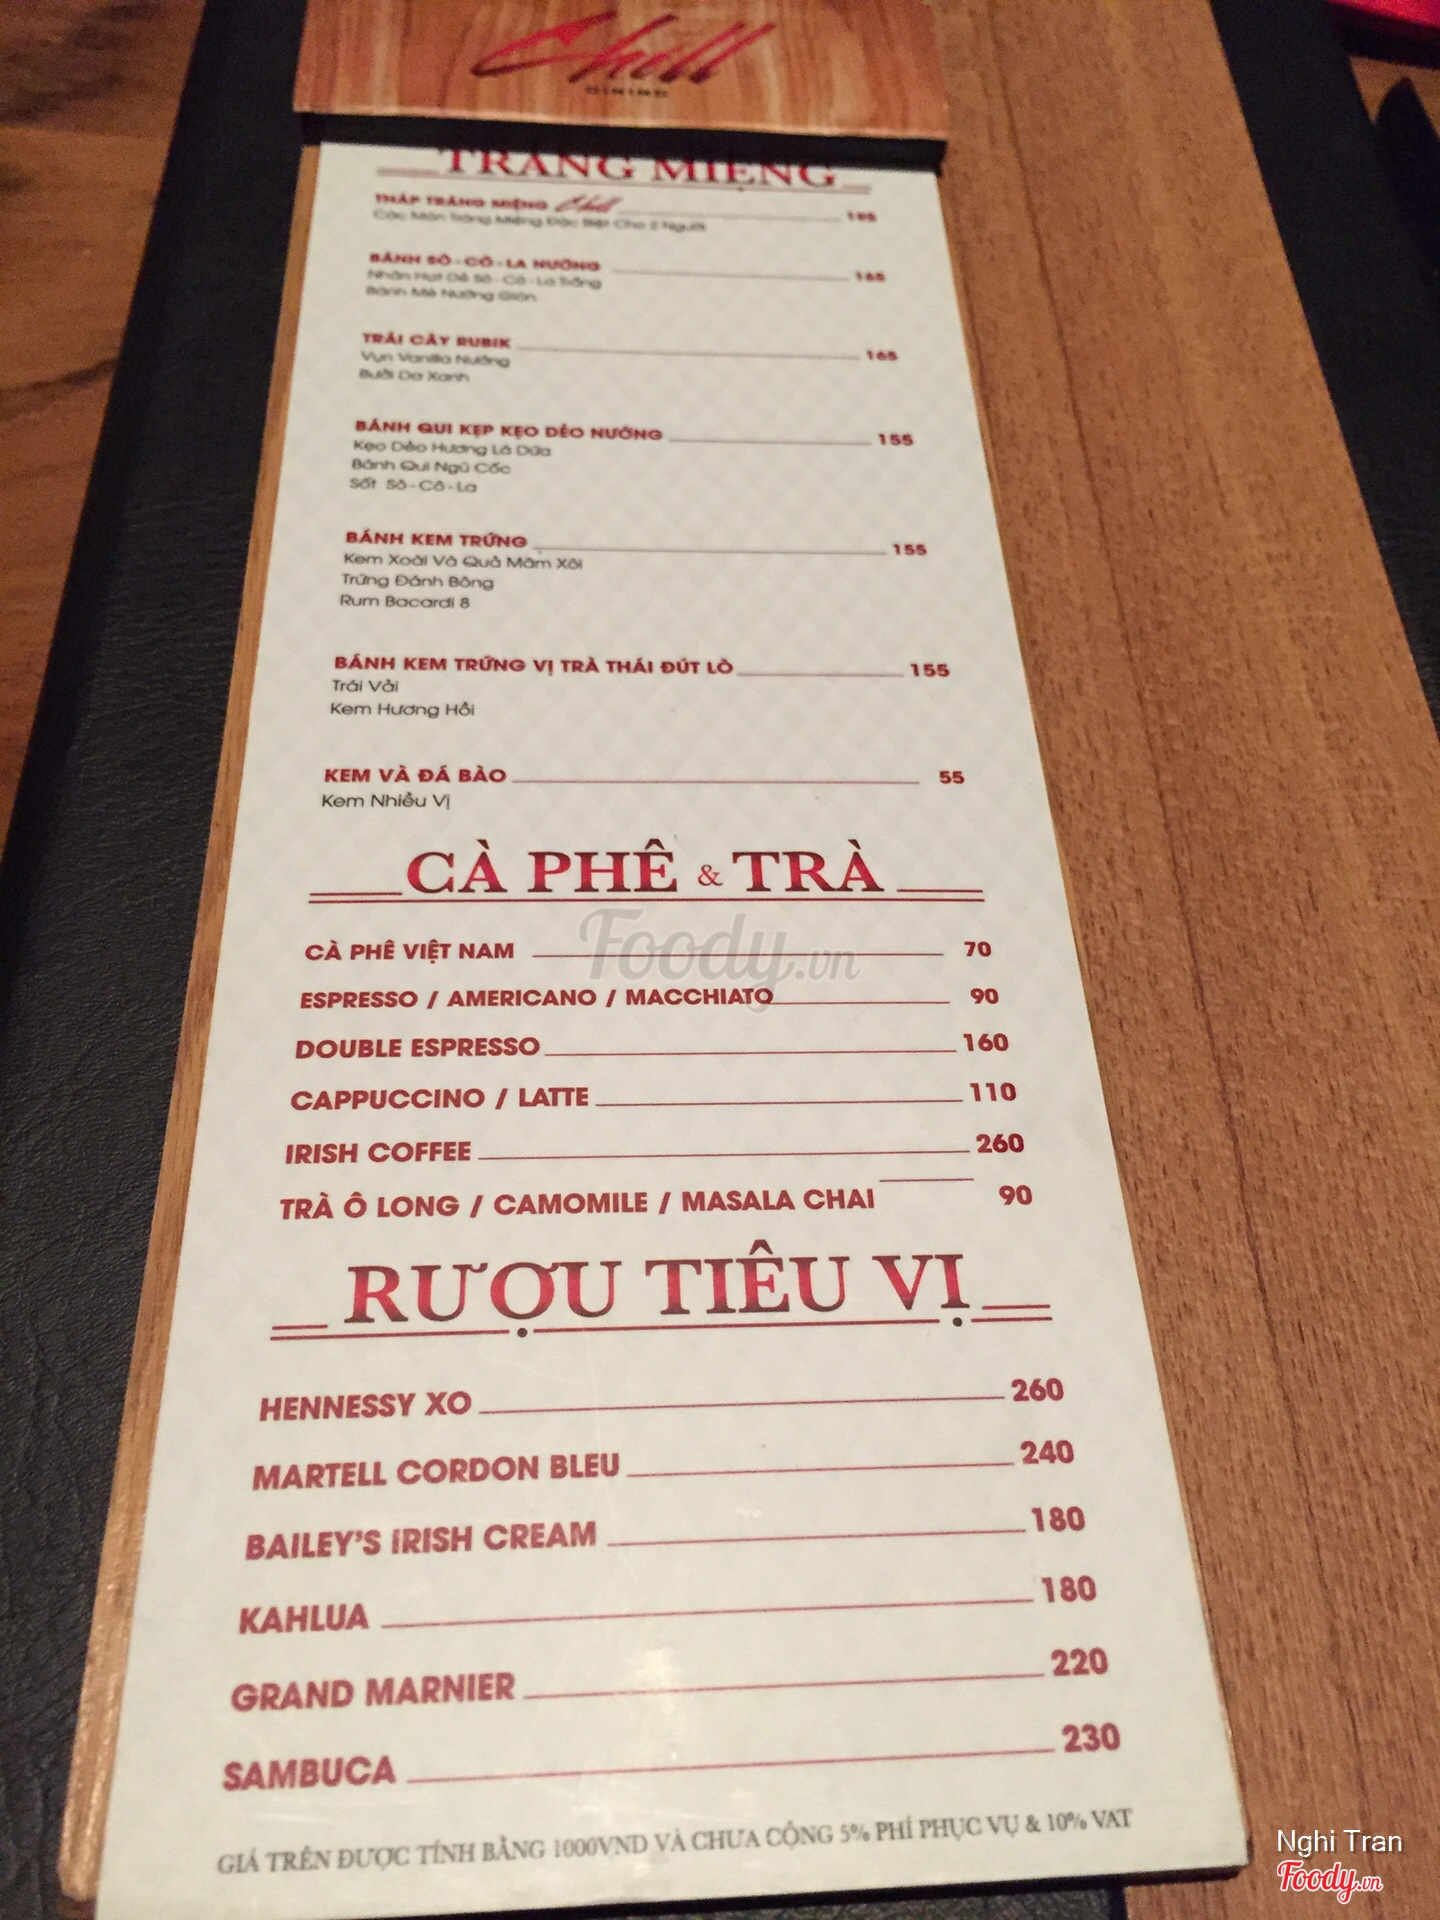 Chill
DINING
TRÁNG MIỆNG
THÁP TRÁNG MIỆNG Chill
Các Món Tráng Miệng Đặc Biệt Cho 2 Người
BÁNH SÔ - CÔ - LA NƯỚNG 165
Nhân Hạt Dẻ Sô - Cô - La Trắng
Bánh Mè Nướng Giòn
TRÁI CÂY RUBIK 165
Vụn Vanilla Nướng
Bưởi Da Xanh
BÁNH QUI KẸP KẸO DẺO NƯỚNG 155
Kẹo Dẻo Hương Lá Dứa
Bánh Qui Ngũ Cốc
Sốt Sô - Cô - La
BÁNH KEM TRỨNG 155
Kem Xoài Và Quả Mâm Xôi
Trứng Đánh Bông
Rum Bacardi 8
BÁNH KEM TRỨNG VỊ TRÀ THÁI ĐÚT LÒ 155
Trái Vải
Kem Hương Hồi
KEM VÀ ĐÁ BÀO 55
Kem Nhiều Vị
CÀ PHÊ & TRÀ
Foody.vn
CÀ PHÊ VIỆT NAM 70
ESPRESSO / AMERICANO / MACCHIATO 90
DOUBLE ESPRESSO 160
CAPPUCCINO / LATTE 110
IRISH COFFEE 260
TRÀ Ô LONG / CAMOMILE / MASALA CHAI 90
RƯỢU TIÊU VỊ
HENNESSY XO 260
MARTELL CORDON BLEU 240
BAILEY'S IRISH CREAM 180
KAHLUA 180
GRAND MARNIER 220
SAMBUCA 230
GIÁ TRÊN ĐƯỢC TÍNH BẰNG 1000VND VÀ CHƯA CỘNG 5% PHÍ PHỤC VỤ & 10% VAT
Nghi Tran
Foody.vn